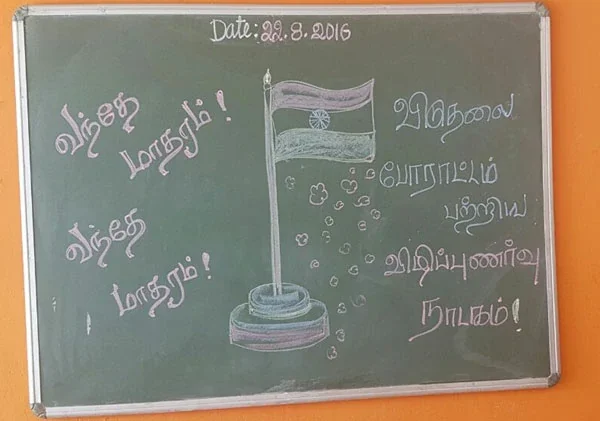 Date: 22.8.2016
வந்தே
மாதரம்!
வந்தே
மாதரம்!
விடுதலை
போராட்டம்
பற்றிய
விழிப்புணர்வு
நாடகம்!